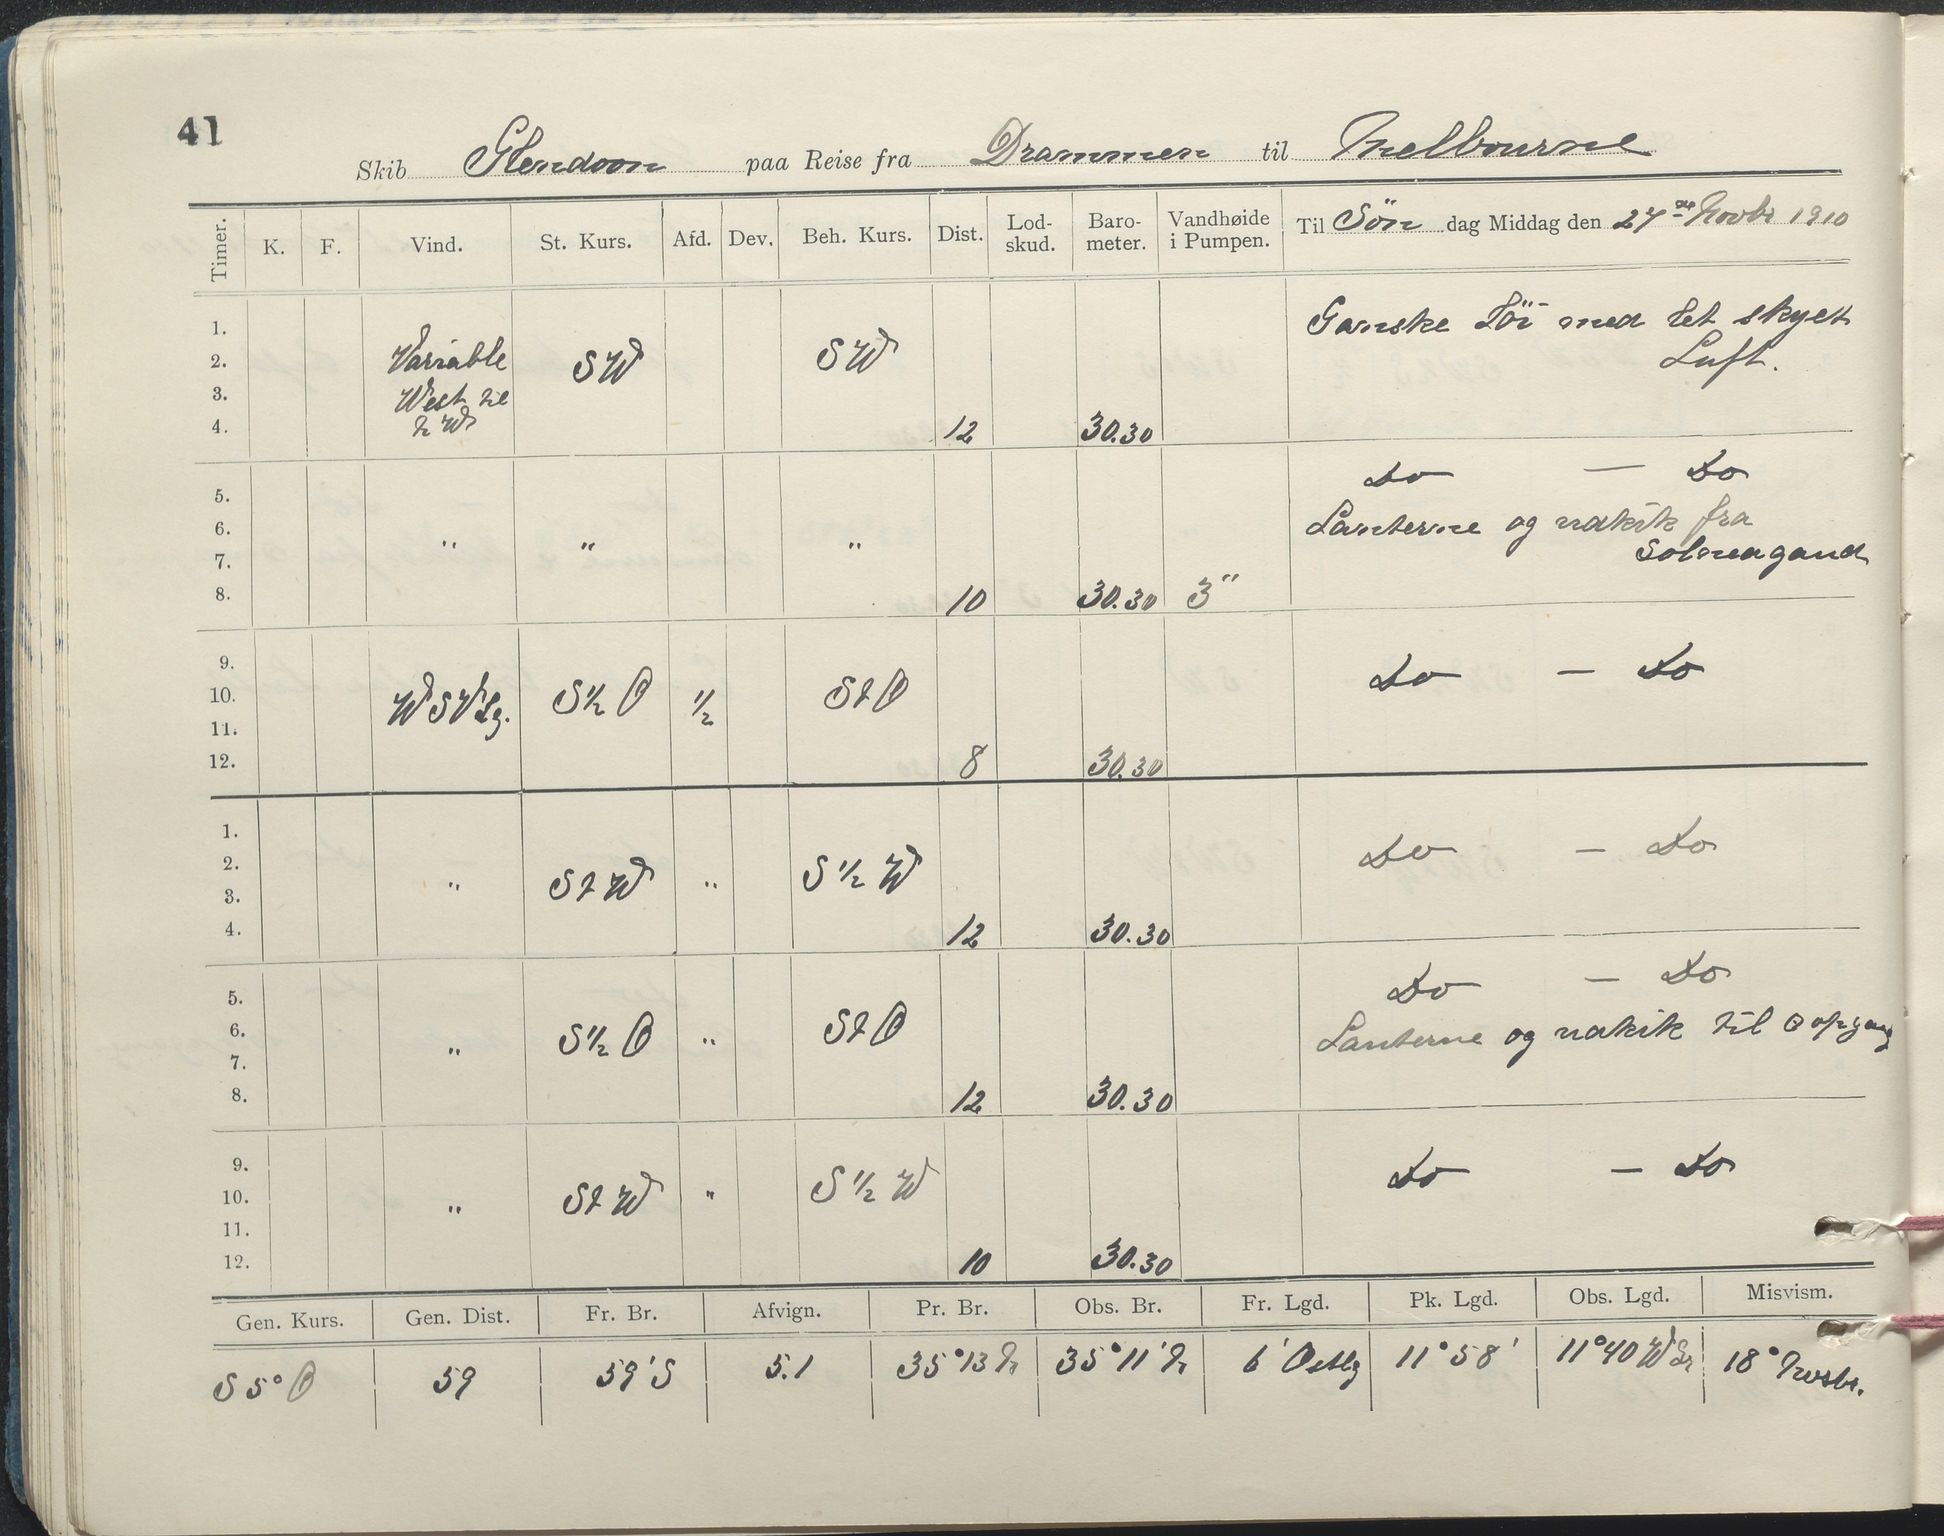 41
Skib Glendoon paa Reise fra Drammen til Melbourne
Timer. K. F. Vind. St. Kurs. Afd. Dev. Beh. Kurs. Dist. Lod-skud. Baro-meter. Vandhøide i Pumpen. Til Sön dag Middag den 27de Novbr 1910
1. Ganske Löi med let skyet
2. Variable SW SW Luft.
3. West til
4. NW 12 30.30
5. Do — Do
6. Lanterne og udkik fra
7. " " " Solnedgand
8. 10 30.30 3"
9.
10. WSWlg. S½O ½ StO Do — Do
11.
12. 8 30.30
1.
2. " StW " S½W Do — Do
3.
4. 12 30.30
5. Do — Do
6. " S½O " StO Lanterne og udkik til ⊙ opgang
7.
8. 12 30.30
9.
10. " StW " S½W Do — Do
11.
12. 10 30.30
Gen. Kurs. Gen. Dist. Fr. Br. Afvign. Pr. Br. Obs. Br. Fr. Lgd. Pk. Lgd. Obs. Lgd. Misvism.
S 5° O 59 59' S 5.1 35°13 N 35°11' N 6' Ostlg 11°58' 11°40 W Gr 18°